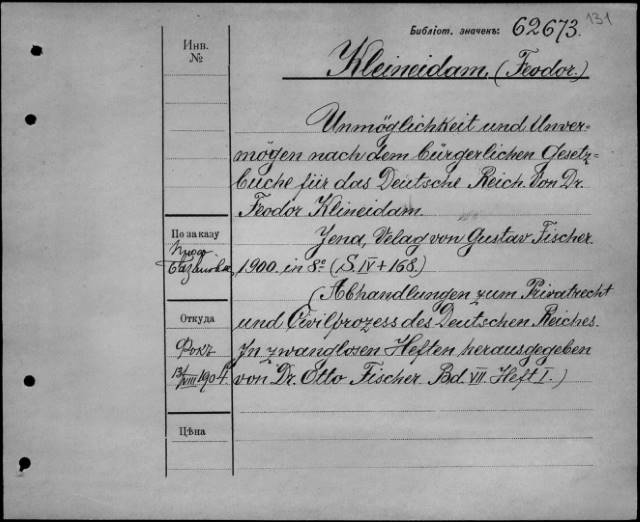 131
Библіот. значекъ: 62673.
Инв.
№
Kleineidam, (Feodor.)
Unmöglichkeit und Unver-
mögen nach dem bürgerlichen Gesetz-
buche für das Deutsche Reich. Von Dr.
Feodor Klineidam.
По заказу
Проф.
Базанова.
Jena, Velag von Gustav Fischer.
1900. in 8º (S. IV + 168.)
(Abhandlungen zum Privatrecht
Откуда
und Civilprozess des Deutschen Reiches.
Фокъ
In zwanglosen Heften herausgegeben
13/VIII 1904
von Dr. Otto Fischer Bd. VII. Heft I.)
Цѣна